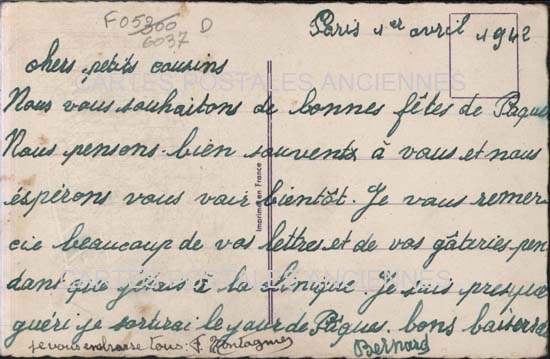 F05300 D
6037
Paris 1er avril 1942
chers petits cousins
CARTES POSTALES ANCIENNES
Nous vous souhaitons de bonnes fêtes de Pâques
Nous pensons bien souvent à vous et nous
éspérons vous voir bientôt. Je vous remer-
cie beaucoup de vos lettres et de vos gâteries pen
CARTES POSTALES ANCIENNES
dant que j'étais à la clinique. Je suis presque
guéri je sortirai le jour de Pâques. bons baisers
je vous embrasse tous.
Bernard
Imprimé en France